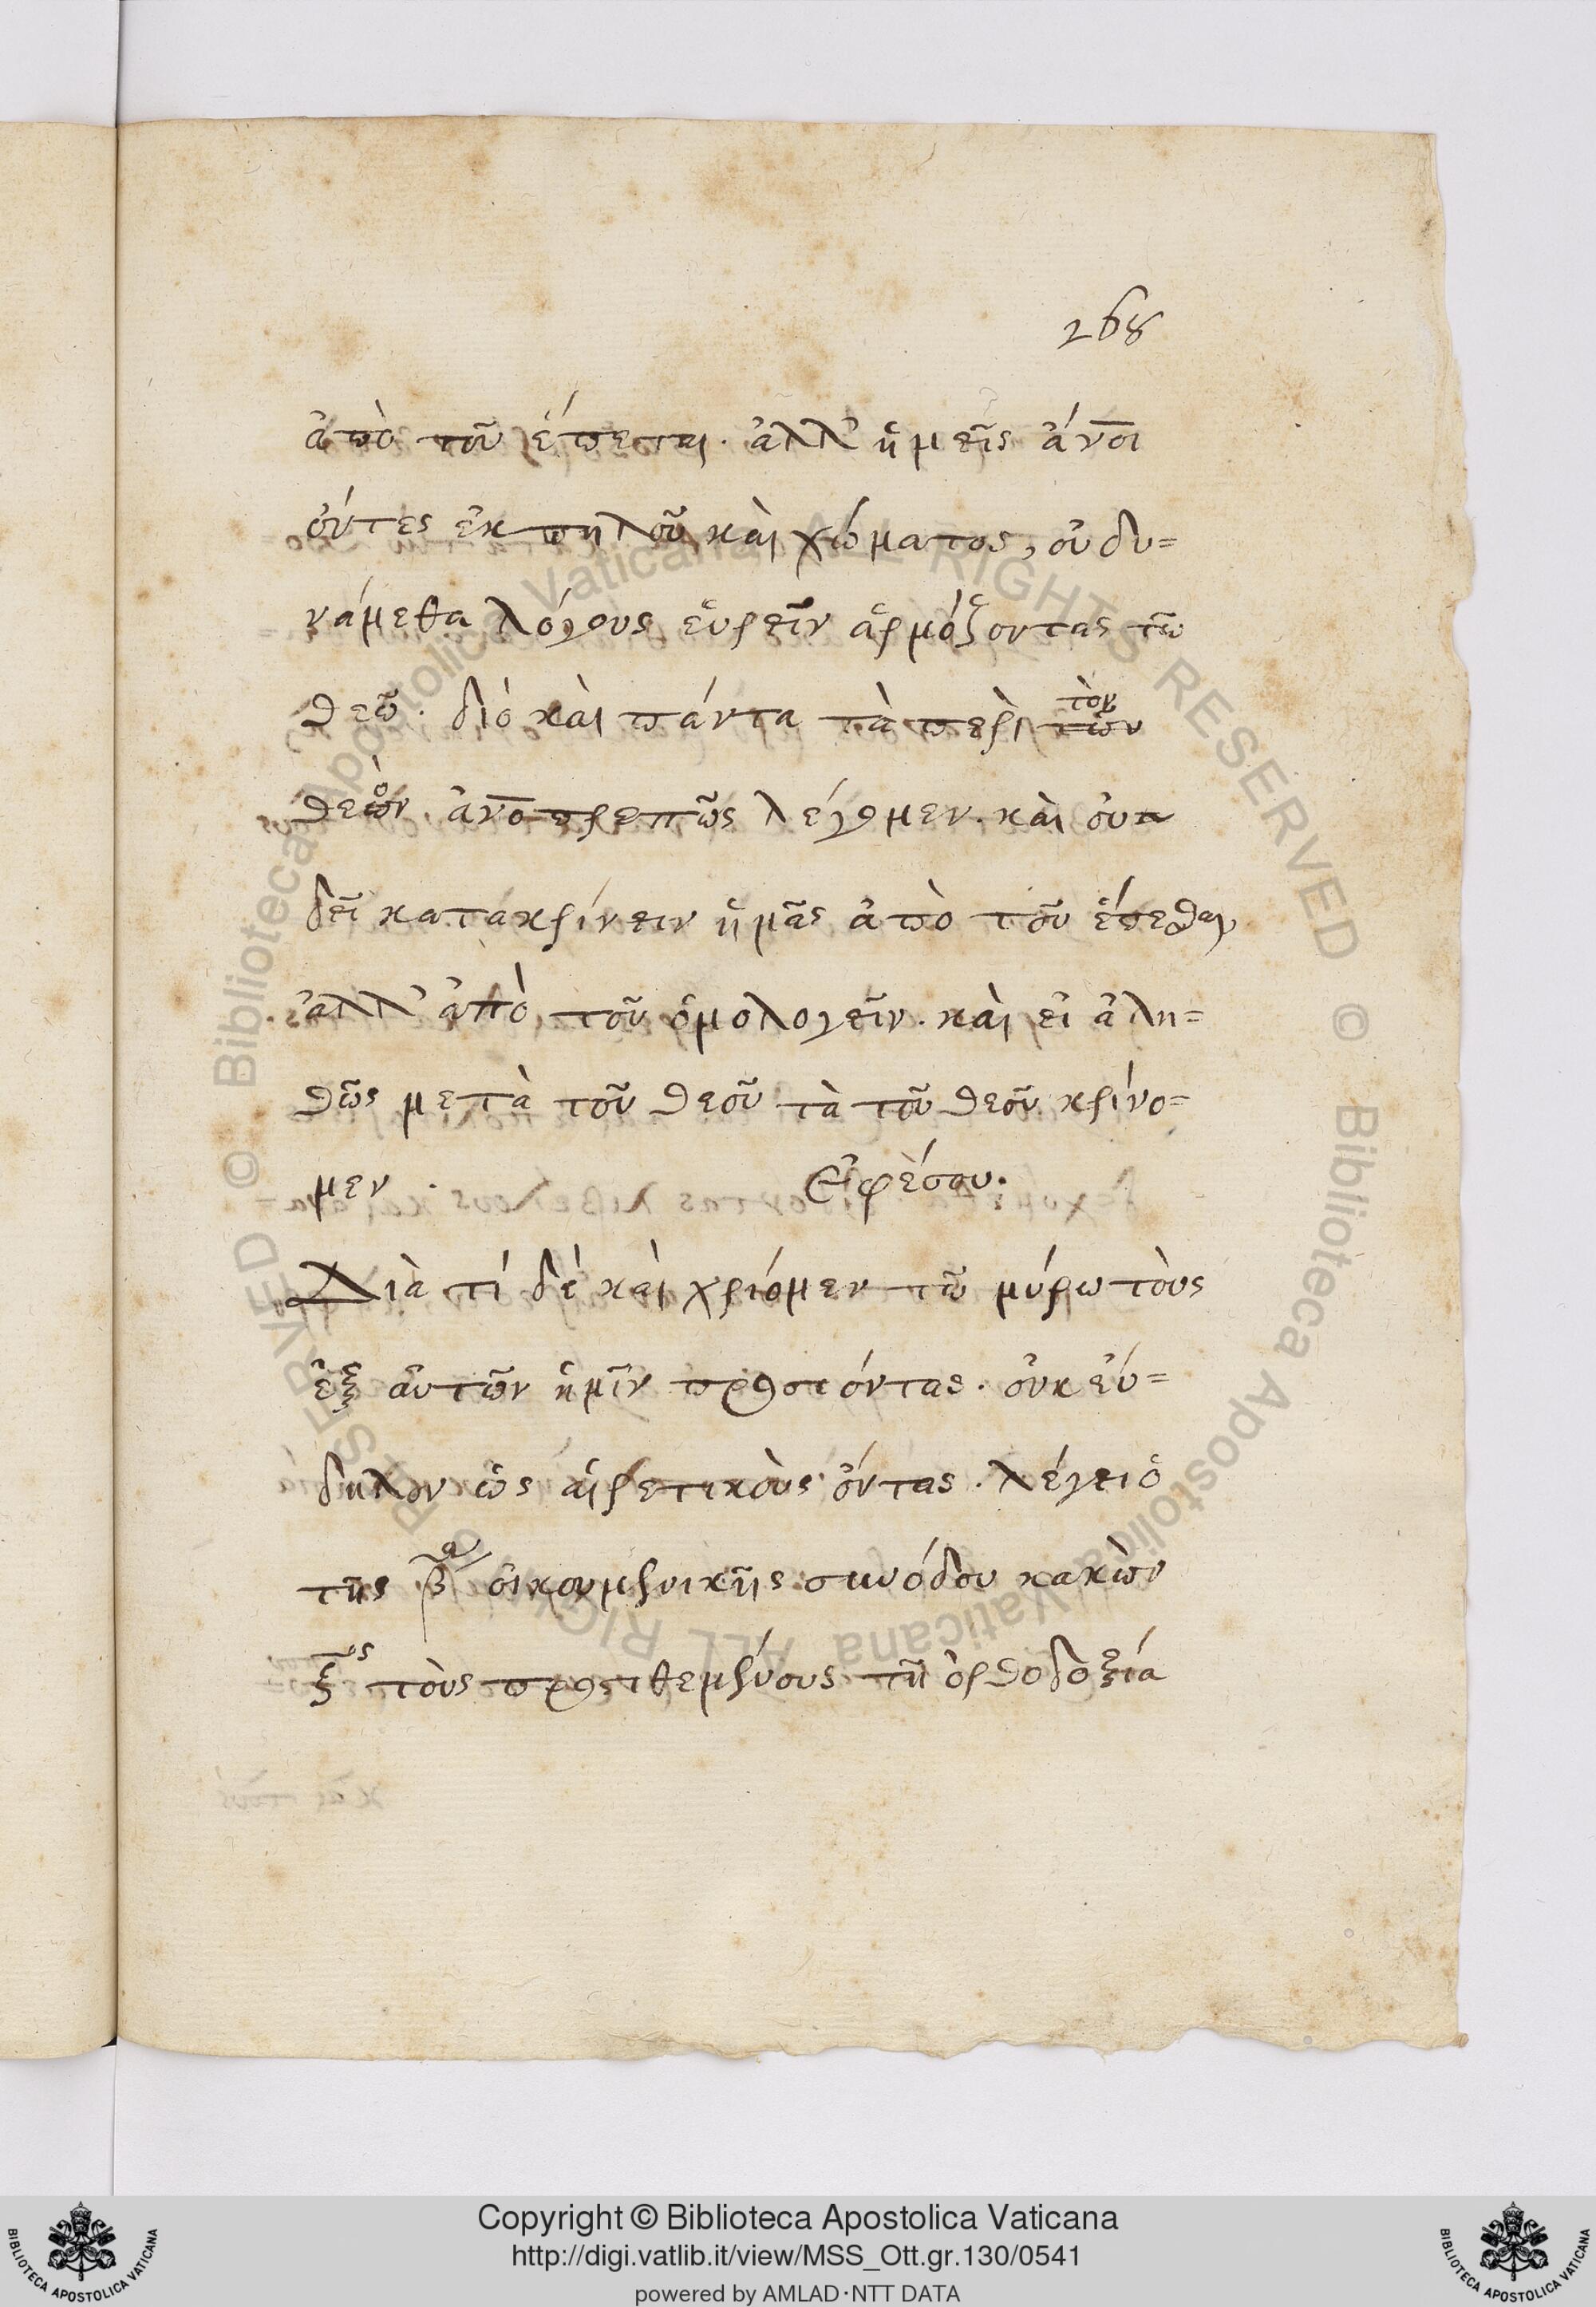 268
ἀπὸ τοῦ ἕπεται. ἀλλ' ἡμεῖς ἄνοι
ὄντες ἐκ πηλοῦ καὶ χώματος, οὐ δυ=
νάμεθα λόγους εὑρεῖν ἁρμόζοντας τῶ
θεῶ. διὸ καὶ πάντα τὰ περὶ τὸν
θεὸν. ἀνοπρεπῶς λέγομεν. καὶ οὐ
δεῖ κατακρίνειν ἡμᾶς ἀπὸ τοῦ ἕπεσθαι,
ἀλλ' ἀπὸ τοῦ ὁμολογεῖν. καὶ εἰ ἀλη=
θῶς μετὰ τοῦ θεοῦ τὰ τοῦ θεοῦ κρίνο=
μεν. Ἐφέσου.
Διὰ τί δὲ καὶ χρίομεν τῶ μύρω τοὺς
ἐξ αὐτῶν ἡμῖν προσιόντας. οὐκ εὔ=
δηλον ὡς αἱρετικοὺς ὄντας. λέγει ὁ
τῆς β οἰκουμενικῆς συνόδου κακὼν
ξος τοὺς προστιθεμένους τῆ ὀρθοδοξία
Copyright © Biblioteca Apostolica Vaticana
http://digi.vatlib.it/view/MSS_Ott.gr.130/0541
powered by AMLAD·NTT DATA
BIBLIOTECA APOSTOLICA VATICANA
BIBLIOTECA APOSTOLICA VATICANA
© Biblioteca Apostolica Vaticana ALL RIGHTS RESERVED
© Biblioteca Apostolica Vaticana ALL RIGHTS RESERVED